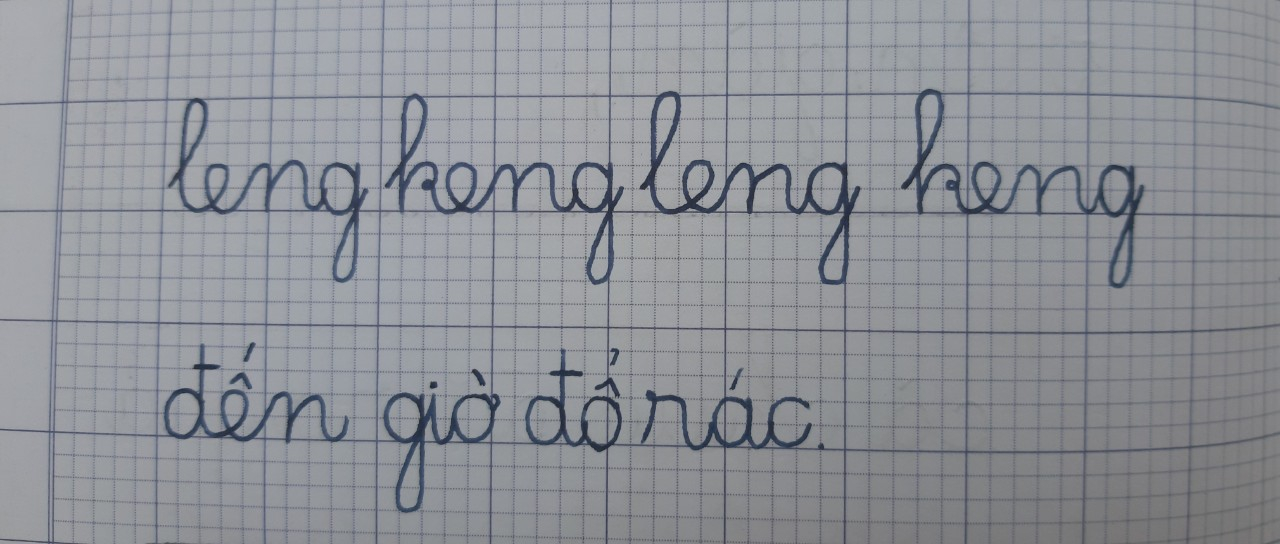 leng keng leng keng
đến giờ đổ rác.